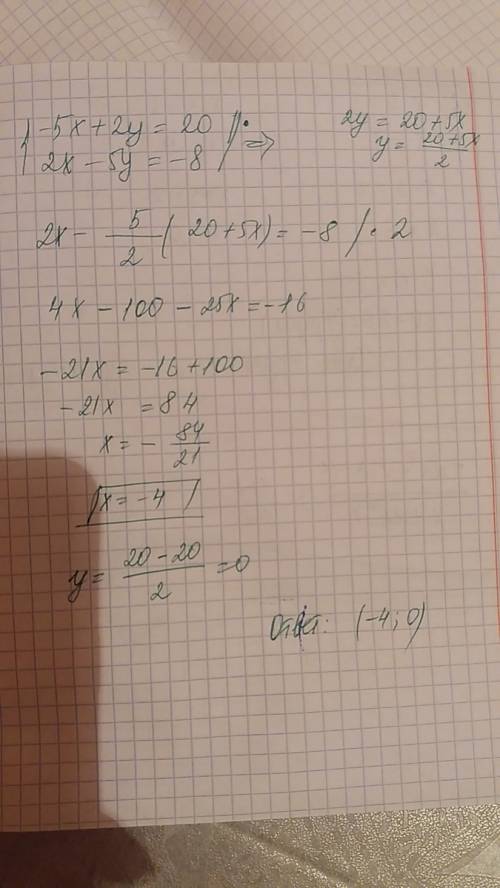 -5x + 2y = 20 | ⇒ 2y = 20 + 5x
2x - 5y = -8 | y = (20 + 5x)/2
2x - 5/2 ( 20 + 5x) = -8 / · 2
4x - 100 - 25x = -16
-21x = -16 + 100
-21x = 84
x = - 84/21
x = -4
y = (20 - 20)/2 = 0
Ответ: (-4; 0)